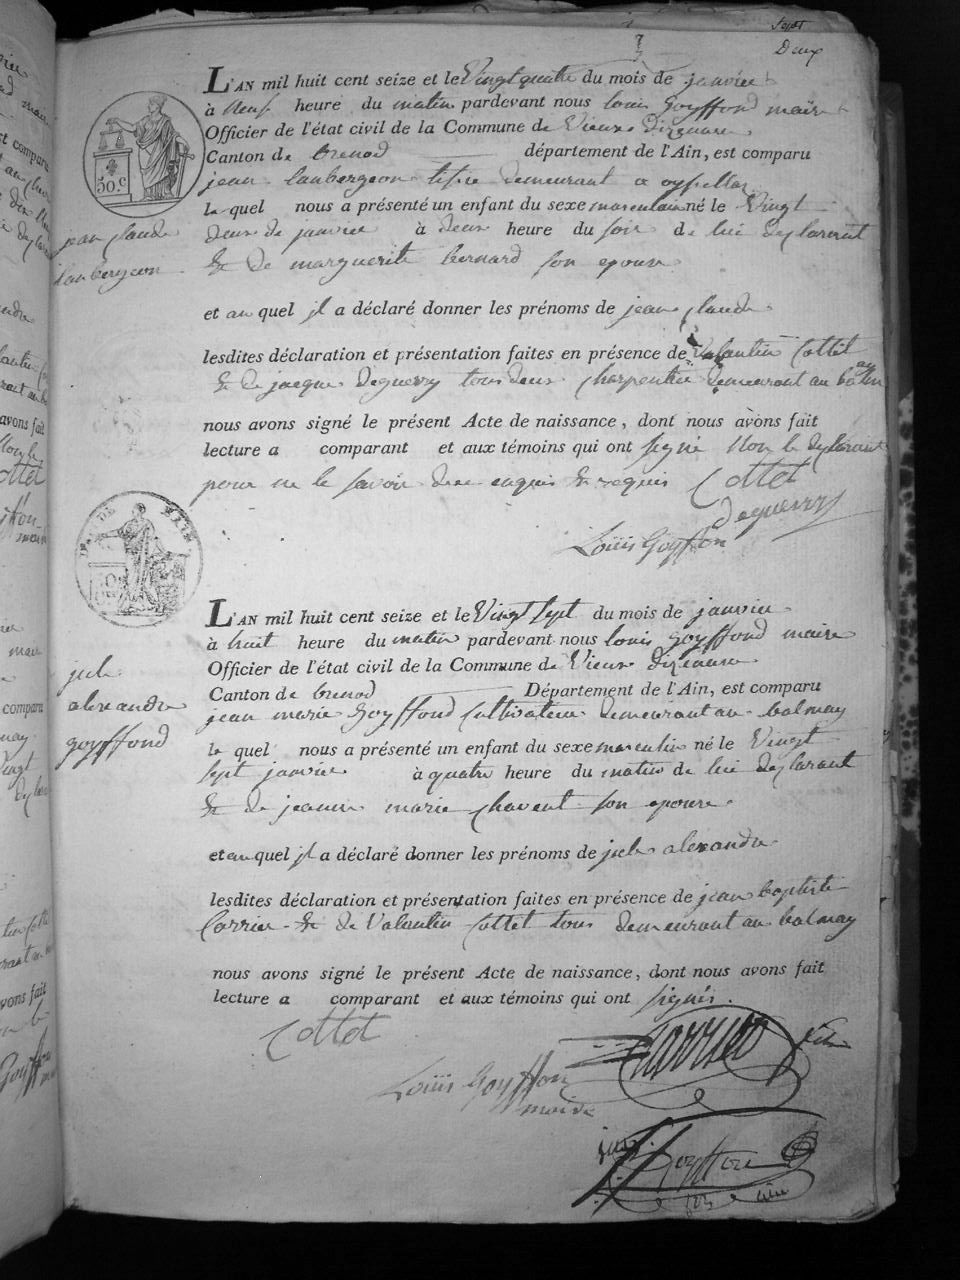 Deux
L'AN mil huit cent seize et le Vingt quatre du mois de janvier
à Neuf heure du matin pardevant nous louis Goyffond maire
Officier de l'état civil de la Commune de Vieux Dizenave
Canton de brenod département de l'Ain, est comparu
jean laubergeon demeurant a oysellaz
le quel nous a présenté un enfant du sexe masculain né le Vingt
deux de janvier à deux heure du soir de lui declarant
& de marguerite bernard son epouse
jean Claude
laubergeon
et au quel il a déclaré donner les prénoms de jean Claude
lesdites déclaration et présentation faites en présence de Valantin Cottet
& de jacque Deguerry tous deux charpentier demeurant au balmay
nous avons signé le présent Acte de naissance, dont nous avons fait
lecture a comparant et aux témoins qui ont signé Non le declarant
pour ne le savoir de ce enquis & requis Cottet
Deguerry
Louis Goyffon
L'AN mil huit cent seize et le Vingt Sept du mois de janvier
à huit heure du matin pardevant nous louis goyffond maire
Officier de l'état civil de la Commune de Vieux Dizenave
Canton de brenod Département de l'Ain, est comparu
jean marie Goyffond Cultivateur demeurant au balmay
jule
alexandre
goyffond
le quel nous a présenté un enfant du sexe masculin né le Vingt
Sept janvier à quatre heure du matin de lui declarant
& de jeanne marie Chavent son epouse
et au quel il a déclaré donner les prénoms de jule alexandre
lesdites déclaration et présentation faites en présence de jean baptiste
Carrier & de Valantin Cottet tous demeurant au balmay
nous avons signé le présent Acte de naissance, dont nous avons fait
lecture a comparant et aux témoins qui ont signés.
Cottet Carrier
Louis Goyffon
maire
Goyffon